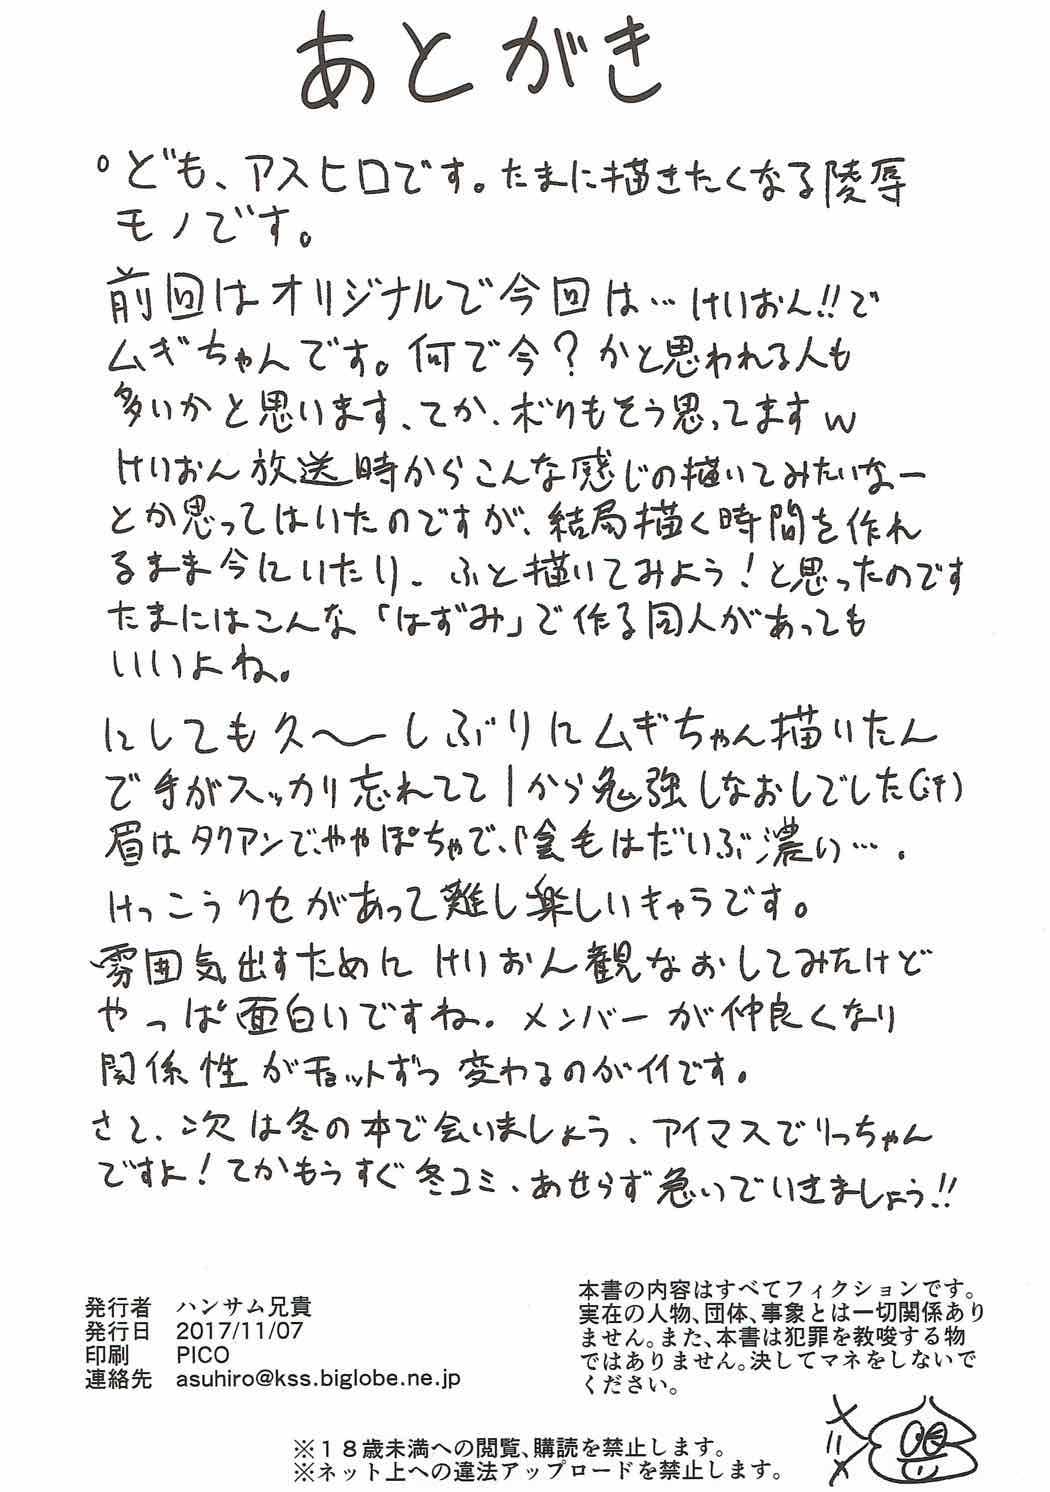 あとがき
°ども、アスヒロです。たまに描きたくなる陵辱
モノです。
前回はオリジナルで今回は…けいおん!!で
ムギちゃんです。何で今？かと思われる人も
多いかと思います、てか、ボクもそう思ってますw
けいおん放送時からこんな感じの描いてみたいなー
とか思ってはいたのですが、結局描く時間を作れ
るまま今にいたり、ふと描いてみよう！と思ったのです
たまにはこんな「はずみ」で作る同人があっても
いいよね。
にしても久〜しぶりにムギちゃん描いたん
で手がスッカリ忘れてて1から勉強しなおしでした(汗)
眉はタクアンで、
けっこうクセがあって難し楽しいキャラです。
雰囲気出すためにけいおん観なおしてみたけど
やっぱ面白いですね。メンバーが仲良くなり
関係性がチョットずつ変わるのがイイです。
さて、次は冬の本で会いましょう、アイマスでりっちゃん
ですよ！てかもうすぐ冬コミ、あせらず急いでいきましょう!!
発行者 ハンサム兄貴
発行日 2017/11/07
印刷 PICO
連絡先 asuhiro@kss.biglobe.ne.jp
本書の内容はすべてフィクションです。
実在の人物、団体、事象とは一切関係あり
ません。また、本書は犯罪を教唆する物
ではありません。決してマネをしないで
ください。
※１８歳未満への閲覧、購読を禁止します。
※ネット上への違法アップロードを禁止します。